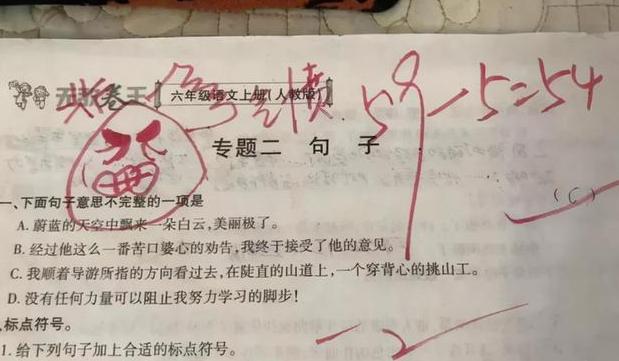 卷王 六年级语文上册(人教版)
59-5=54
专题二 句 子
一、下面句子意思不完整的一项是 (C)
A. 蔚蓝的天空中飘来一朵白云,美丽极了。
B. 经过他这么一番苦口婆心的劝告,我终于接受了他的意见。
C. 我顺着导游所指的方向看过去,在陡直的山道上,一个穿背心的挑山工。
D. 没有任何力量可以阻止我努力学习的脚步!
标点符号。
1. 给下列句子加上合适的标点符号。
-2